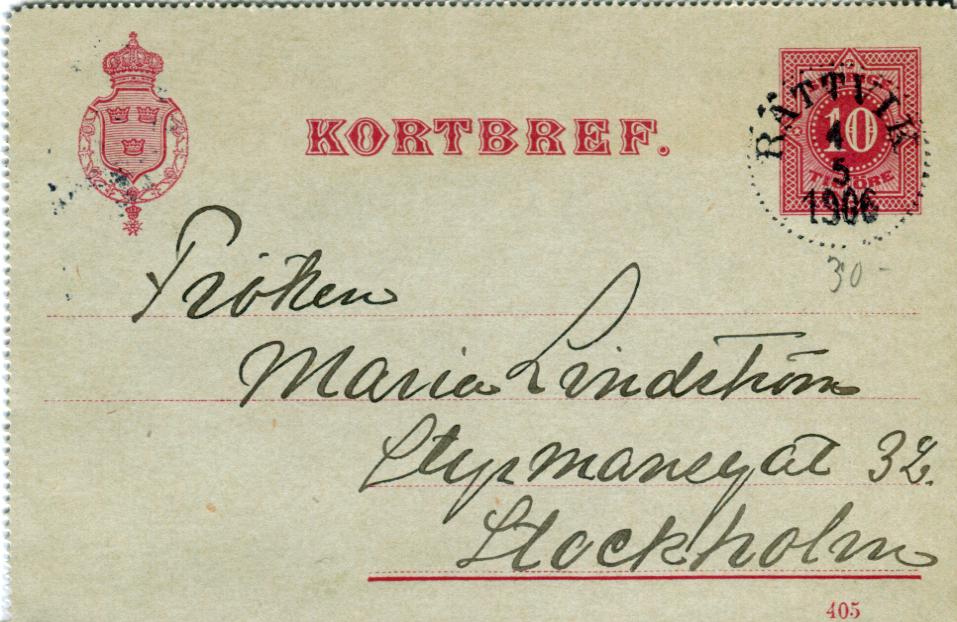 KORTBREF.
SVERIGE
10
TIO ÖRE
RÄTTVIK
4
5
1906
30 -
Fröken
Maria Lindström
Styrmansgat 32.
Stockholm
405